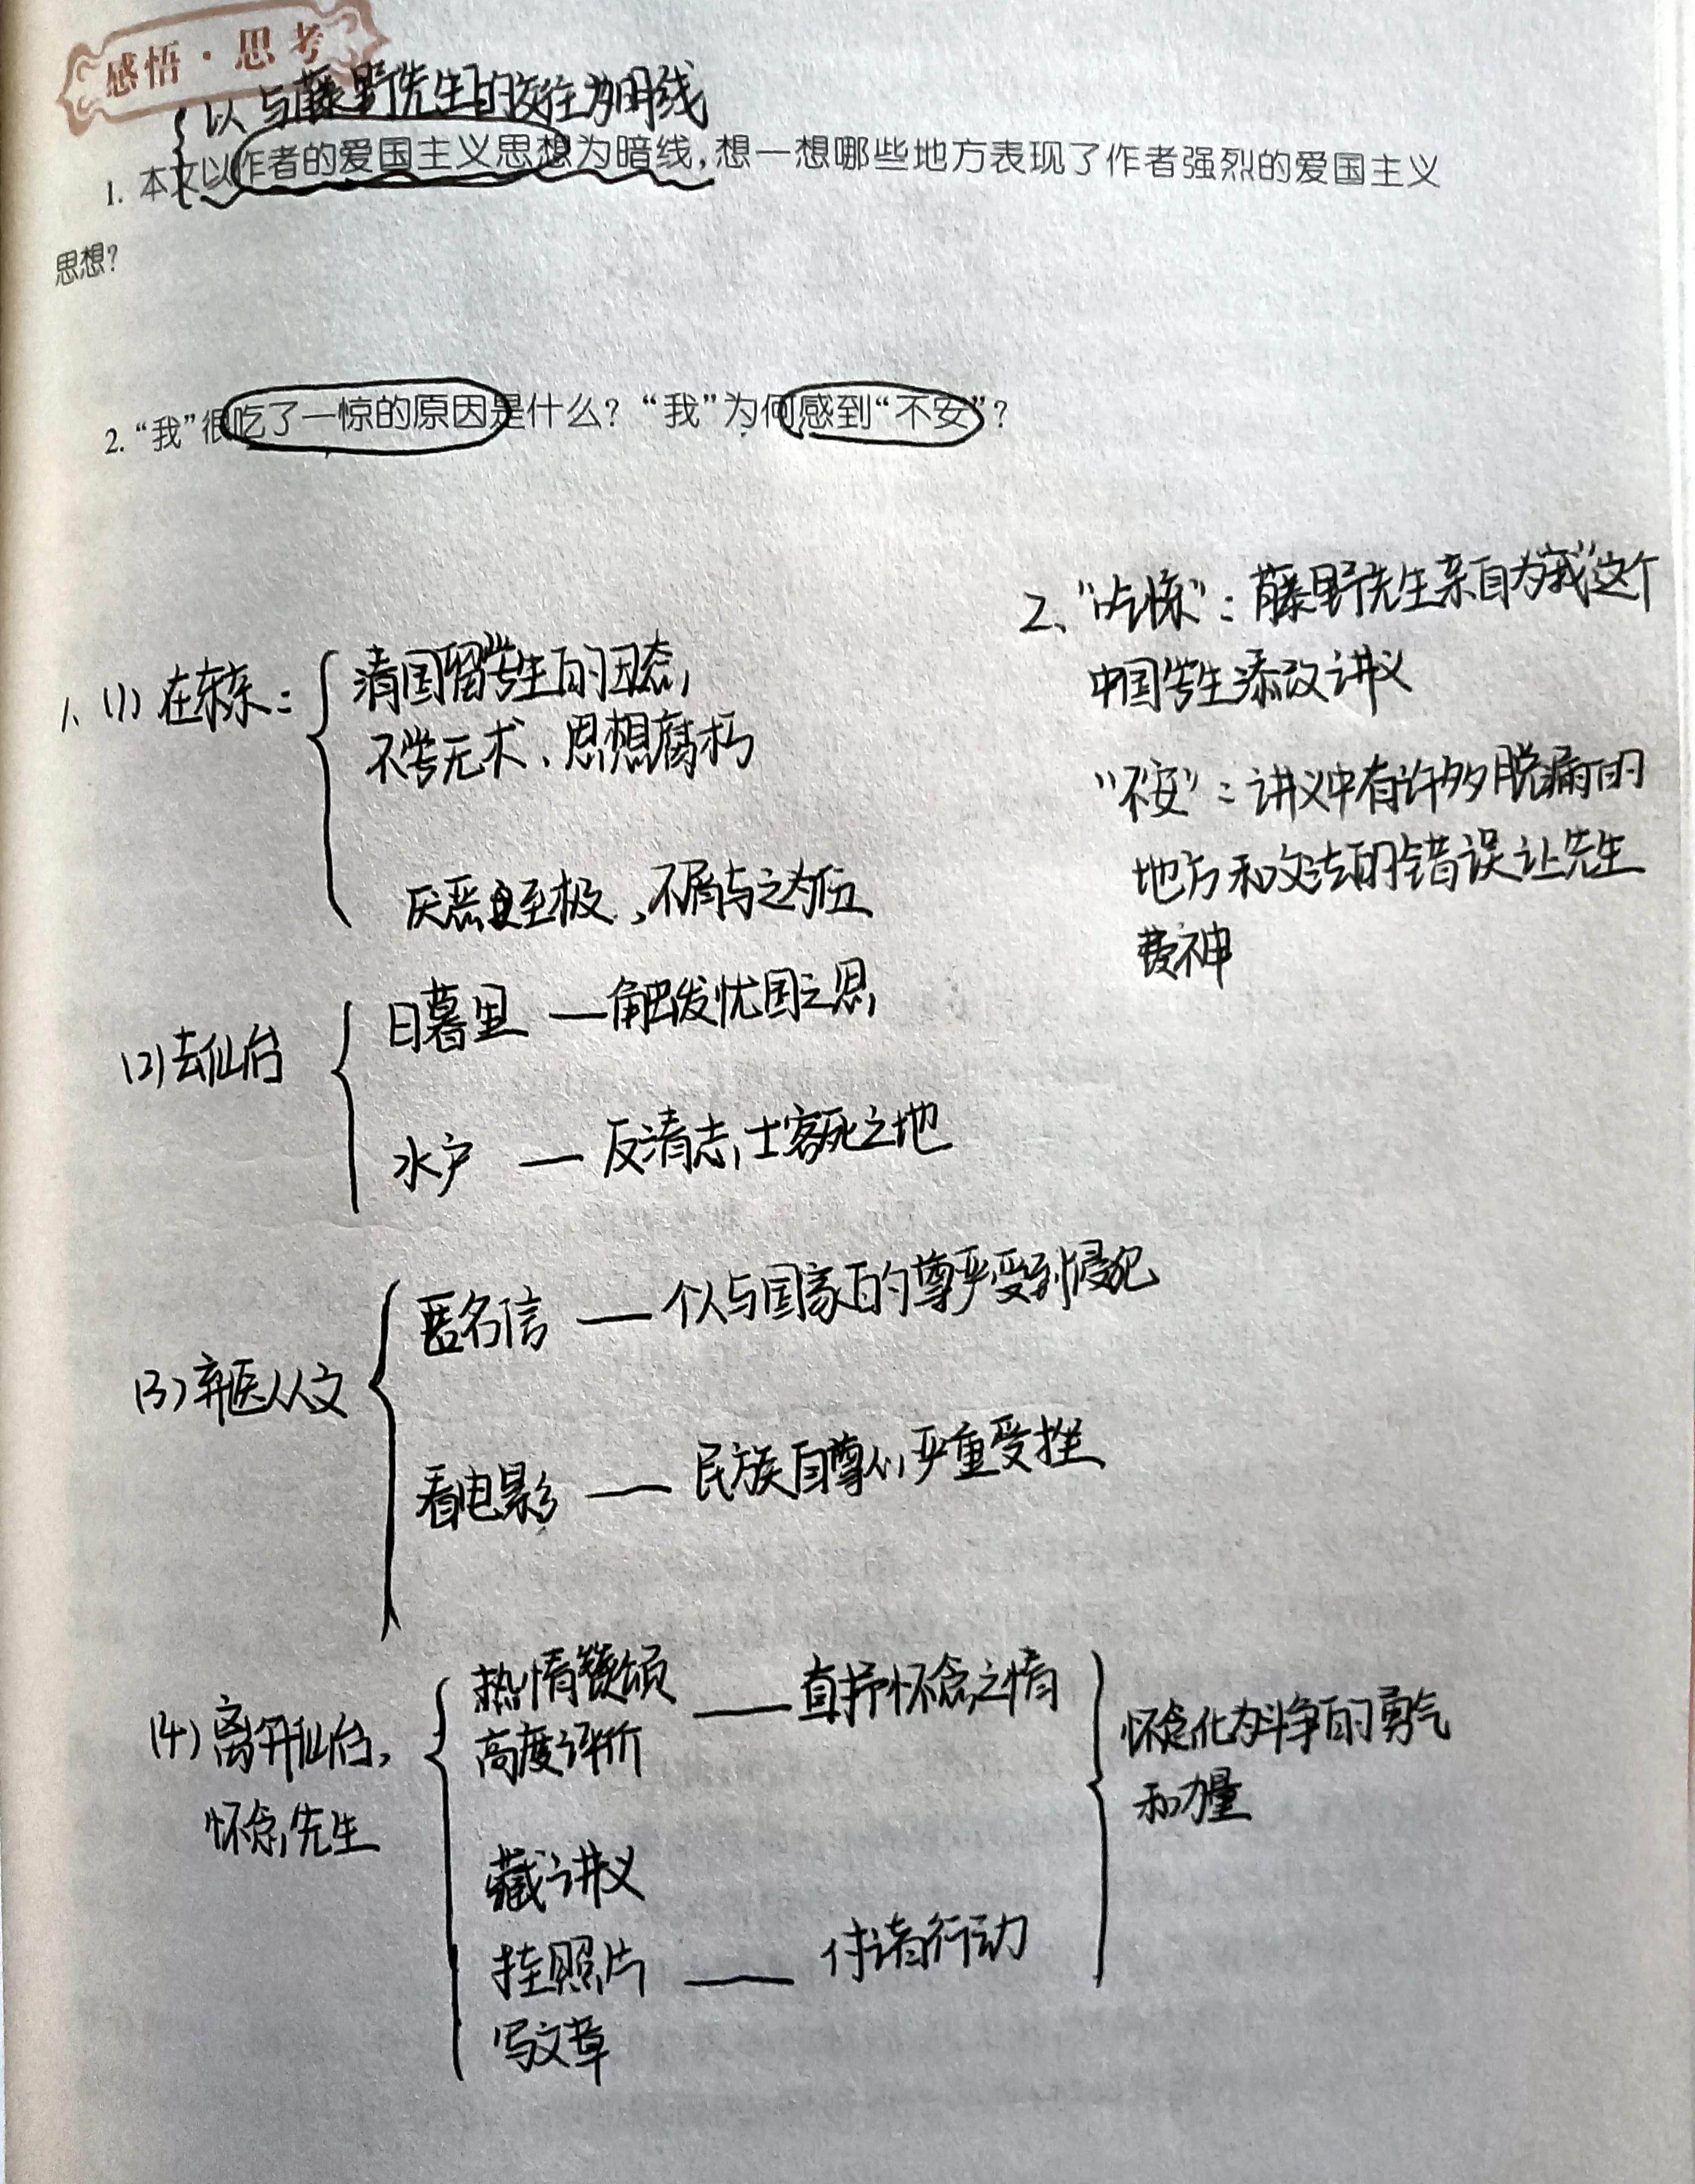 感悟·思考
以与藤野先生的交往为明线
1. 本文以作者的爱国主义思想为暗线,想一想哪些地方表现了作者强烈的爱国主义
思想?
2. “我”很吃了一惊的原因是什么? “我”为何感到“不安”?
2、“吃惊”: 藤野先生亲自为“我”这个
中国学生添改讲义
“不安”: 讲义中有许多脱漏的
地方和文法的错误让先生
费神
1、(1) 在东京:
清国留学生的丑态,
不学无术、思想腐朽
厌恶至极,不屑与之为伍
(2) 去仙台
日暮里 — 触发忧国之思
水户 — 反清志士客死之地
(3) 弃医从文
匿名信 — 个人与国家的尊严受到侵犯
看电影 — 民族自尊心严重受挫
(4) 离开仙台,
怀念先生
热情赞颂
高度评价
— 直抒怀念之情
藏讲义
挂照片 — 付诸行动
写文章
怀念化为斗争的勇气
和力量